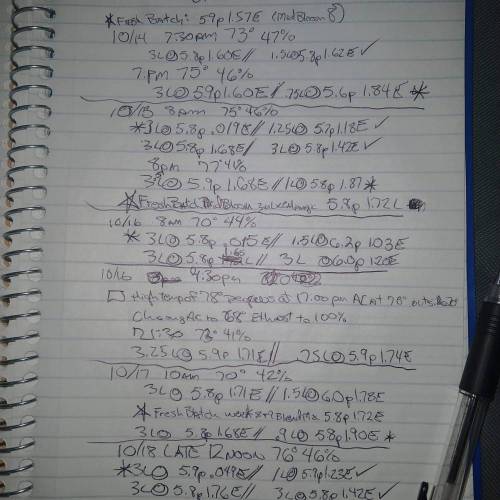 *Fresh Batch: 5.9p 1.57E (Mid Bloom 8)
10/14 7:30am 73° 47%
3L@ 5.8p 1.60E// 1.5L@ 5.8p 1.62E✓
7pm 75° 46%
3L@ 5.9p 1.60E// .75L@ 5.6p 1.84E *
10/15 8am 75° 46%
*3L@ 5.8p .019E// 1.25L@ 5.7p 1.18E✓
3L@ 5.8p 1.68E// 3L@ 5.8p 1.42E✓
8pm 77° 41%
3L@ 5.9p 1.68E// 1L@ 5.8p 1.87*
*Fresh Batch Mid Bloom 5.8p 1.72
10/16 8am 70° 44%
* 3L@ 5.8p .015E// 1.5L@ 6.2p 1.03E
3L@ 5.8p 1.65// 3L@ 6.0p 1.20E
10/16 4:30pm
High temp of 78 Degrees at 17:00 pm AC at 70°
Chang AC to 68° to 100%
21:30 73° 41%
3.25L@ 5.9p 1.71E// .75L@ 5.9p 1.74E
10/17 10am 70° 42%
3L@ 5.8p 1.71E// 1.5L@ 6.0p 1.78E
*Fresh Batch week 5.8p 1.72E
3L@ 5.8p 1.68E// .9L@ 5.8p 1.90E *
10/18 LATE 12 NOON 76° 46%
*3L@ 5.9p .049E// 1L@ 5.9p 1.23E✓
3L@ 5.8p 1.76E// 3L@ 5.8p 1.42E✓